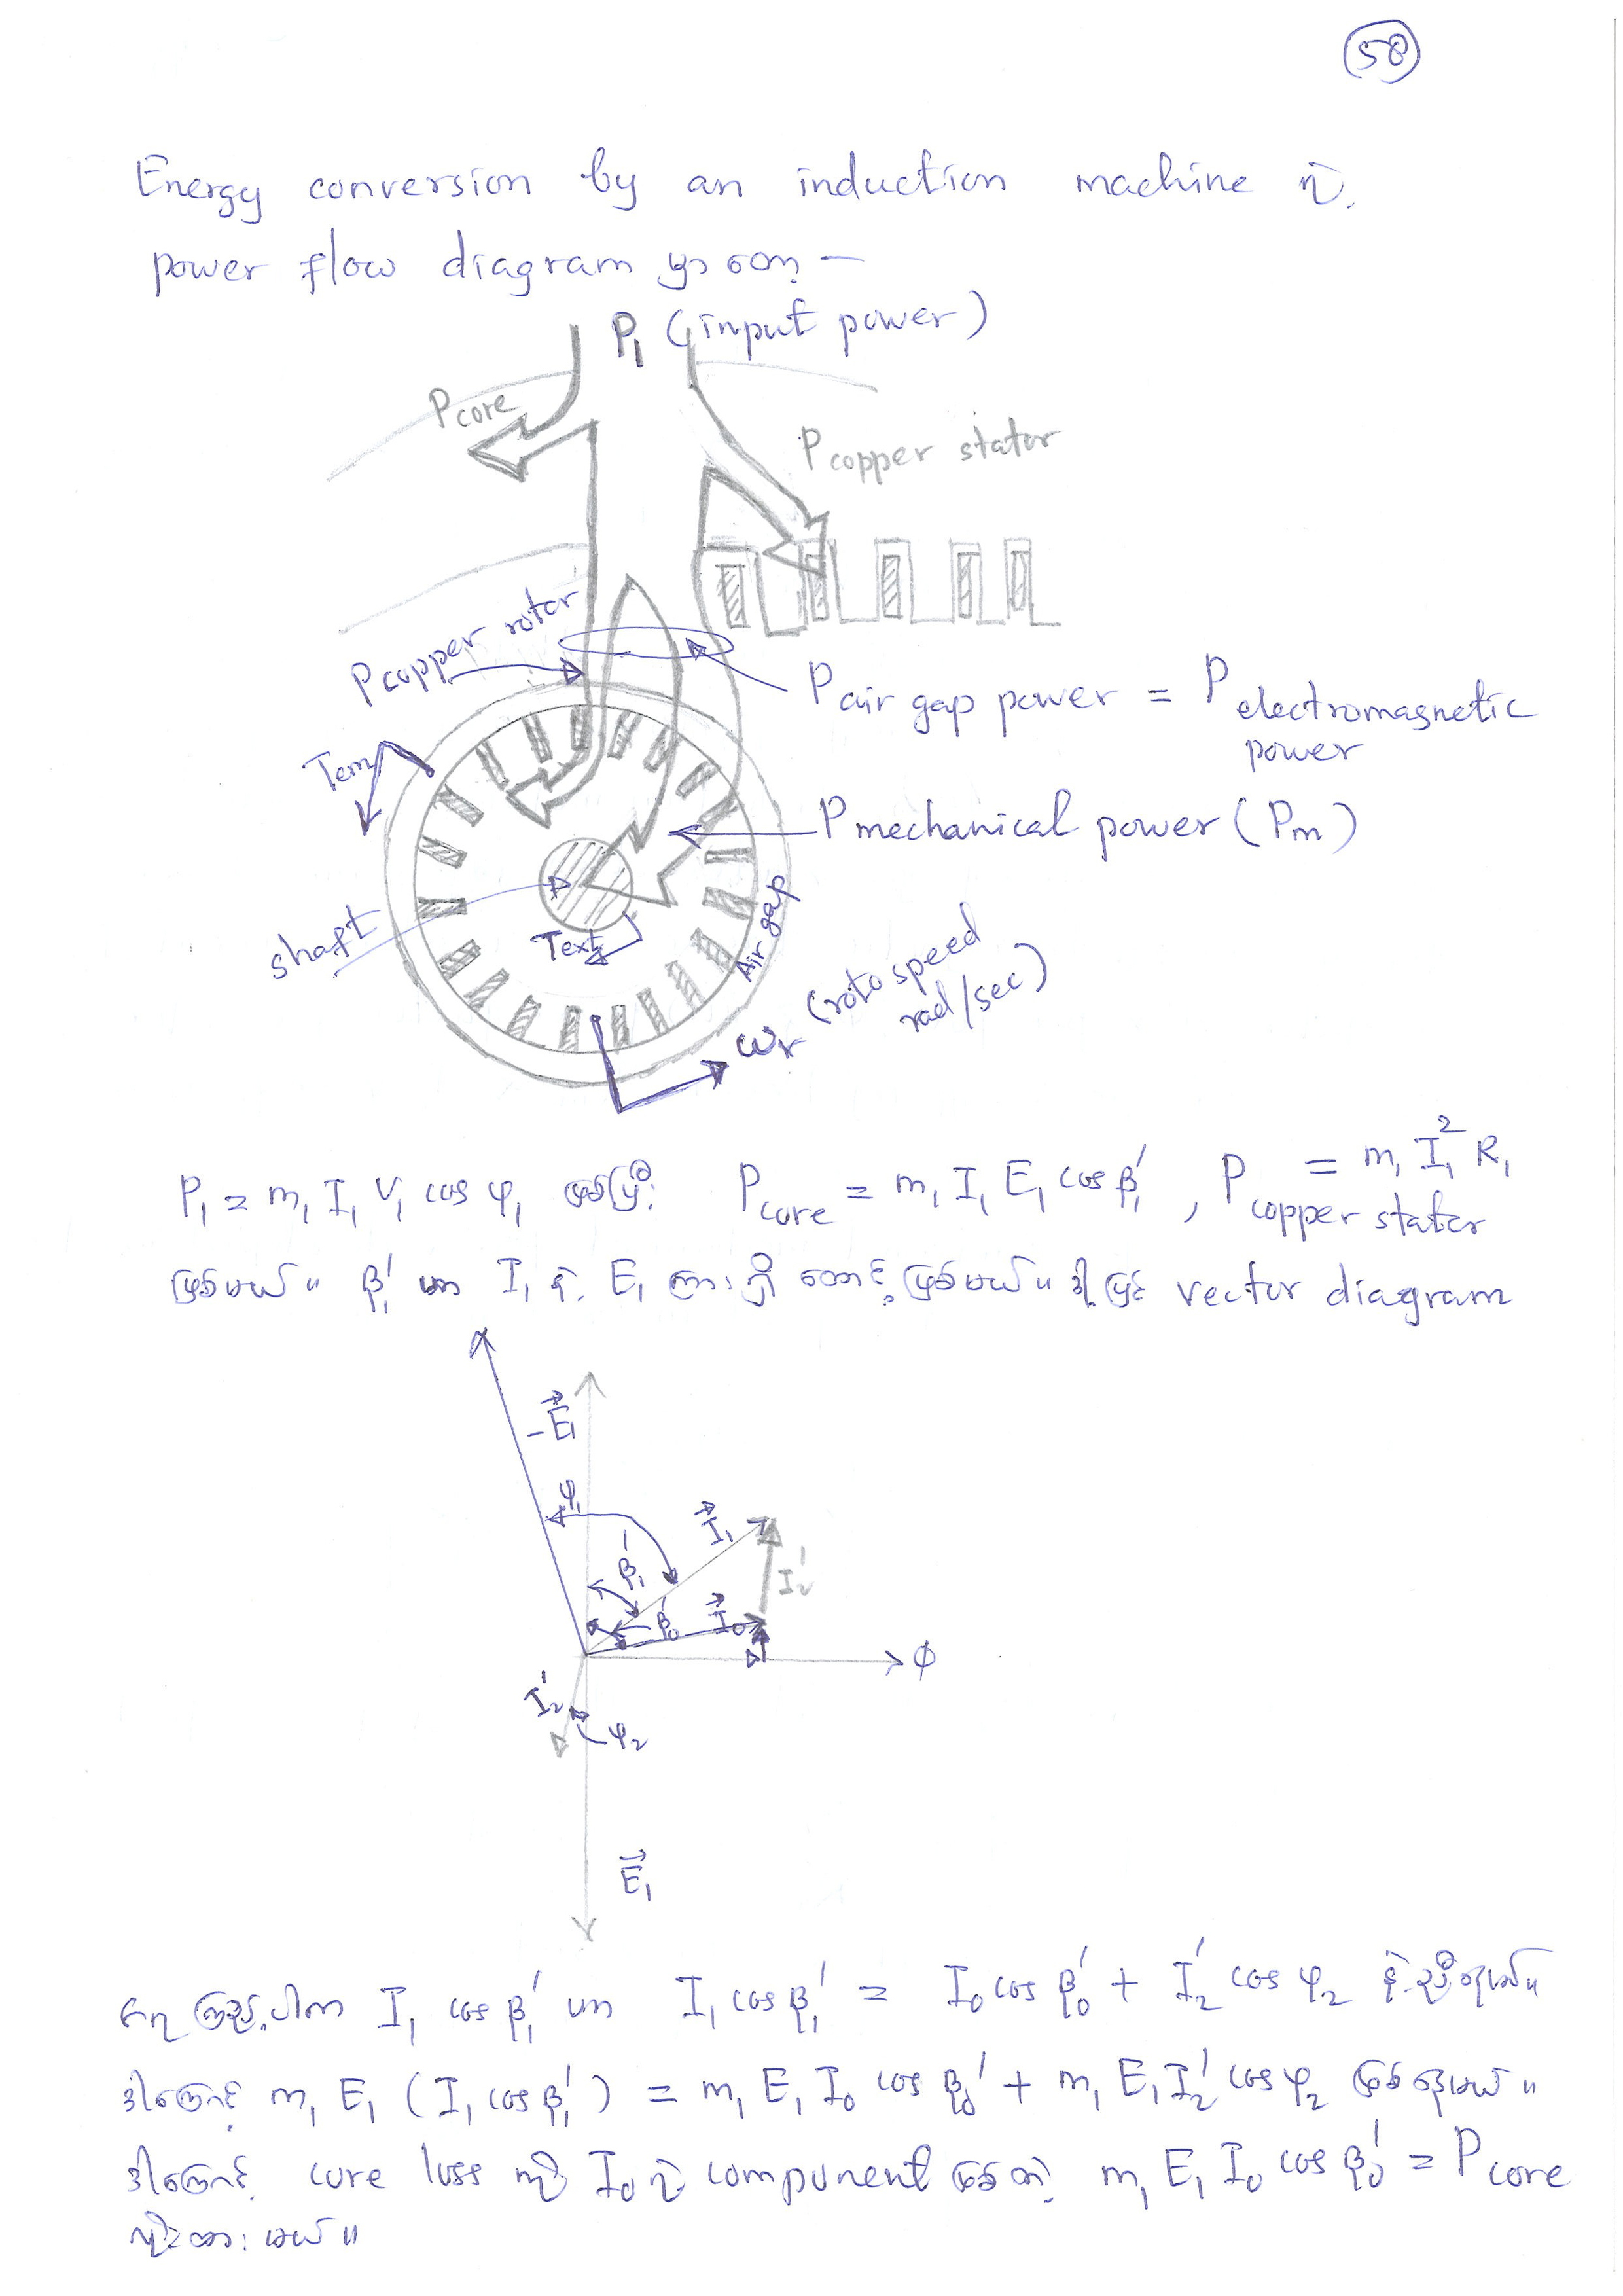 58
Energy conversion by an induction machine ရဲ့
power flow diagram မှာ တော့ —
P₁ (input power)
Pcore
Pcopper stator
Pcopper rotor
Pair gap power = Pelectromagnetic power
Tem
Pmechanical power (Pm)
shaft
Text
Air gap
ωr (roto speed rad/sec)
P₁ = m₁ I₁ V₁ cos φ₁ ဖြစ်ပြီး Pcore = m₁ I₁ E₁ cos β₁′ , Pcopper stator = m₁ I₁² R₁
ဖြစ်မယ်။ β₁′ ဟာ I₁ နဲ့ E₁ ကြားရှိ ထောင့် ဖြစ်မယ်။ ဒါ့ပြင် vector diagram
-E⃗₁
φ₁
I⃗₁
β₁′
I₂′
β₀′
I⃗₀
ϕ
I₂′
φ₂
E⃗₁
ကြည့်ပါက I₁ cos β₁′ ဟာ I₁ cos β₁′ = I₀ cos β₀′ + I₂′ cos φ₂ နဲ့ ညီရမယ်။
ဒါကြောင့် m₁ E₁ (I₁ cos β₁′) = m₁ E₁ I₀ cos β₀′ + m₁ E₁ I₂′ cos φ₂ ဖြစ်နေမယ်။
ဒါကြောင့် core loss ကို I₀ ရဲ့ component ဖြစ်တဲ့ m₁ E₁ I₀ cos β₀′ = Pcore
ထားမယ်။